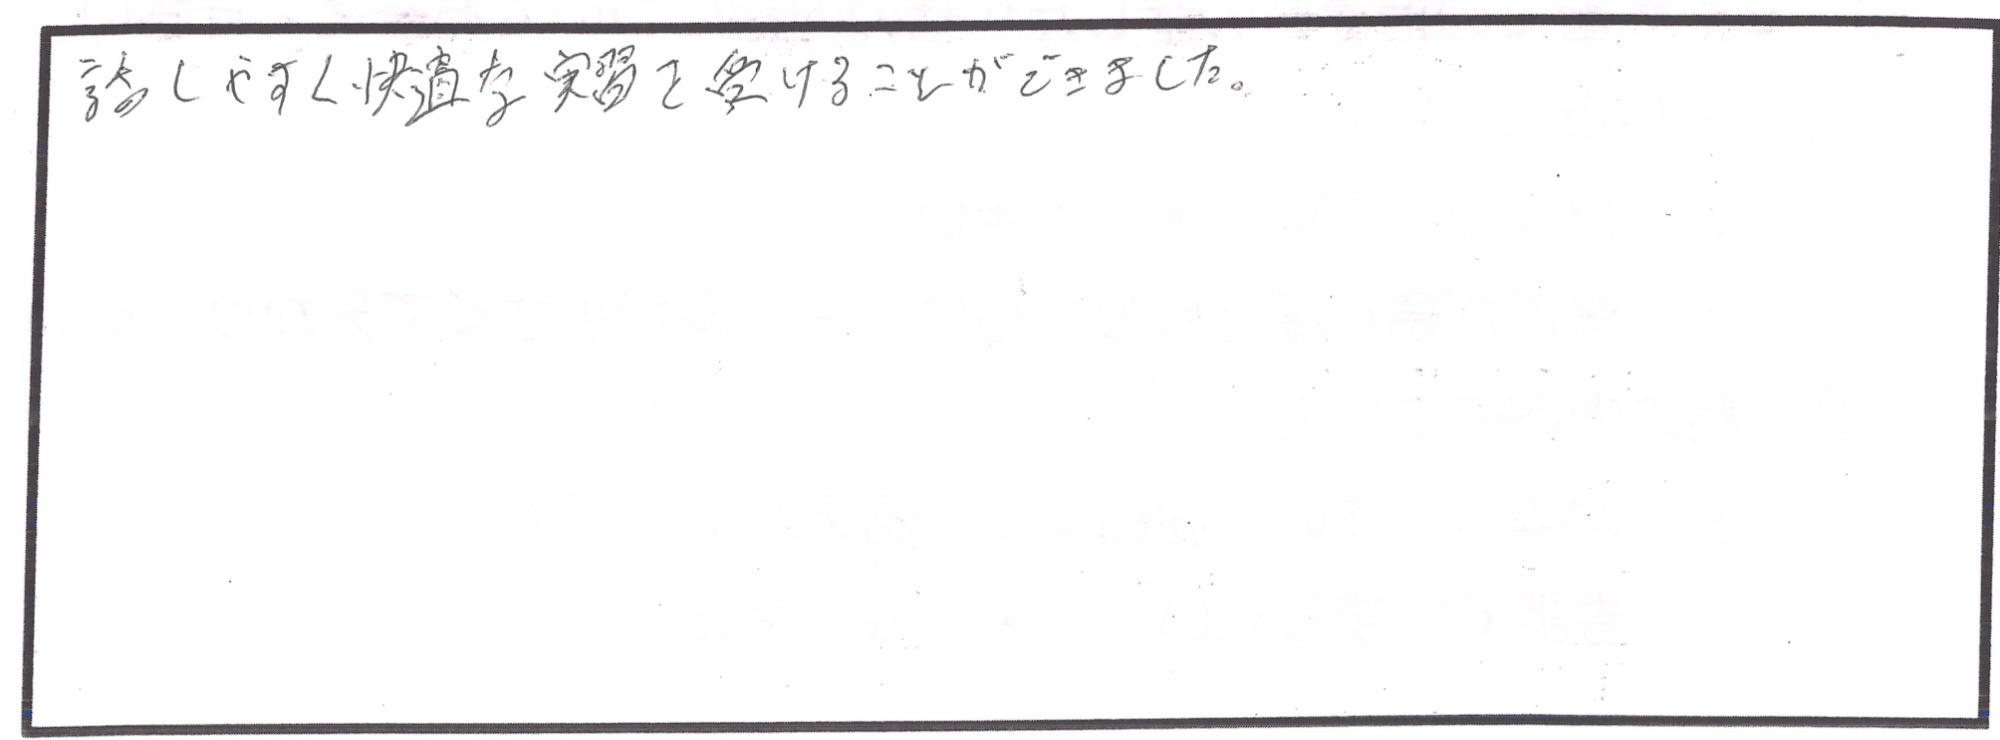 話しやすく快適な実習を受けることができました。